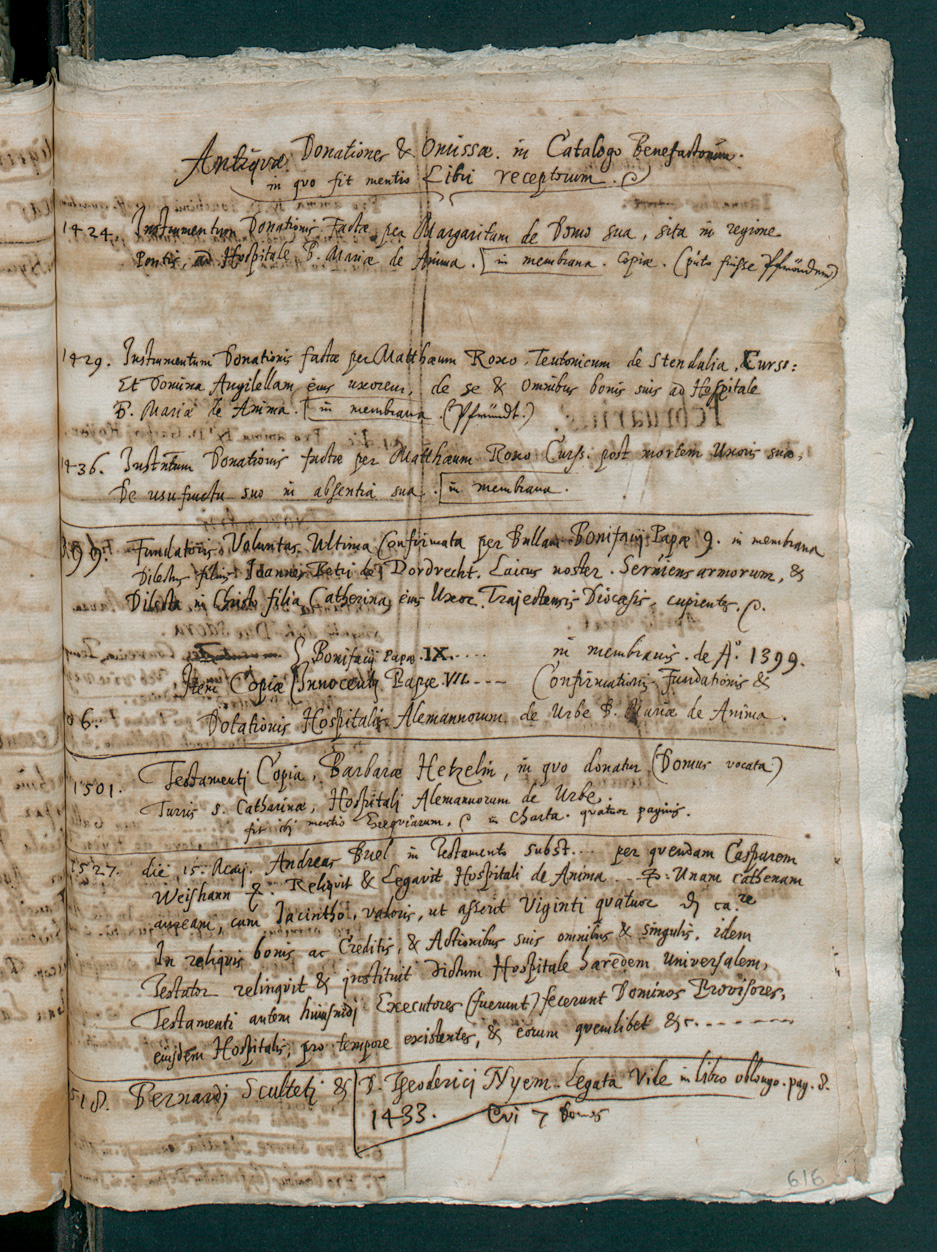 Antiquæ Donationes & Omissæ in Catalogo Benefactorum.
in quo fit mentio Libri receptorum.
1424. Instrumentum Donationis Factæ per Margaritam de Domo sua, sita in regione
Pontis, ad Hospitale B. Mariæ de Anima. in membrana. Copiæ. (puto fuisse Pfründem)
1429. Instrumentum Donationis factæ per Matthæum Roxo Teutonicum de Stendalia, Curso:
Et Domina Angilellam eius uxorem, de se & omnibus bonis suis ad Hospitale
B. Mariæ de Anima. in membrana (Pfründt.)
1436. Instrntum Donationis factæ per Matthæum Roxo Curss. post mortem Uxoris suæ,
De usufructu suo in absentia sua. in membrana.
99. Fundatoris Voluntas Ultima Confirmata per Bullam Bonifacij Papæ 9. in membrana
Dilectus filius Joannes Petri de Dordrecht. Laicus noster. Serviens armorum, &
Dilecta in Christo filia Catherina eius Uxor. Trajectensis Diocæsis. cupientes.
Bonifacij Papæ IX..... in membranis. de Aº. 1399.
Item Copiæ Innocentij Papæ VII.---- Confirmationis Fundationis &
06. Dotationis Hospitalis Alemannorum de Urbe B. Mariæ de Anima.
1501. Testamenti Copia, Barbaræ Hetzelin, in quo donatur (Domus vocata)
Turris S. Catharinæ, Hospitali Alemannorum de Urbe.
fit mentio Exequiarum. in charta. quatuor paginis.
1527. die 15. Maij. Andreas Buel in Testamento subst.... per quendam Casparem
Weishann Reliquit & Legavit Hospitali de Anima ... Unam cathenam
auream, cum Jacintho, valoris, ut asserit Viginti quatuor
In reliquis bonis ac Creditis, & Actionibus suis omnibus & singulis, idem
Testator relinquit & instituit dictum Hospitale hæredem Universalem,
Testamenti autem huiusmodi Executores (fuerunt) fecerunt Dominos Provisores,
eiusdem Hospitalis, pro tempore existentes, & eorum quemlibet &c.--------
518. Bernardj Scultetj & D. Theodericj Nyem. Legata Vide in libro oblongo. pag. 8.
1433. Cui 7 Domos
616